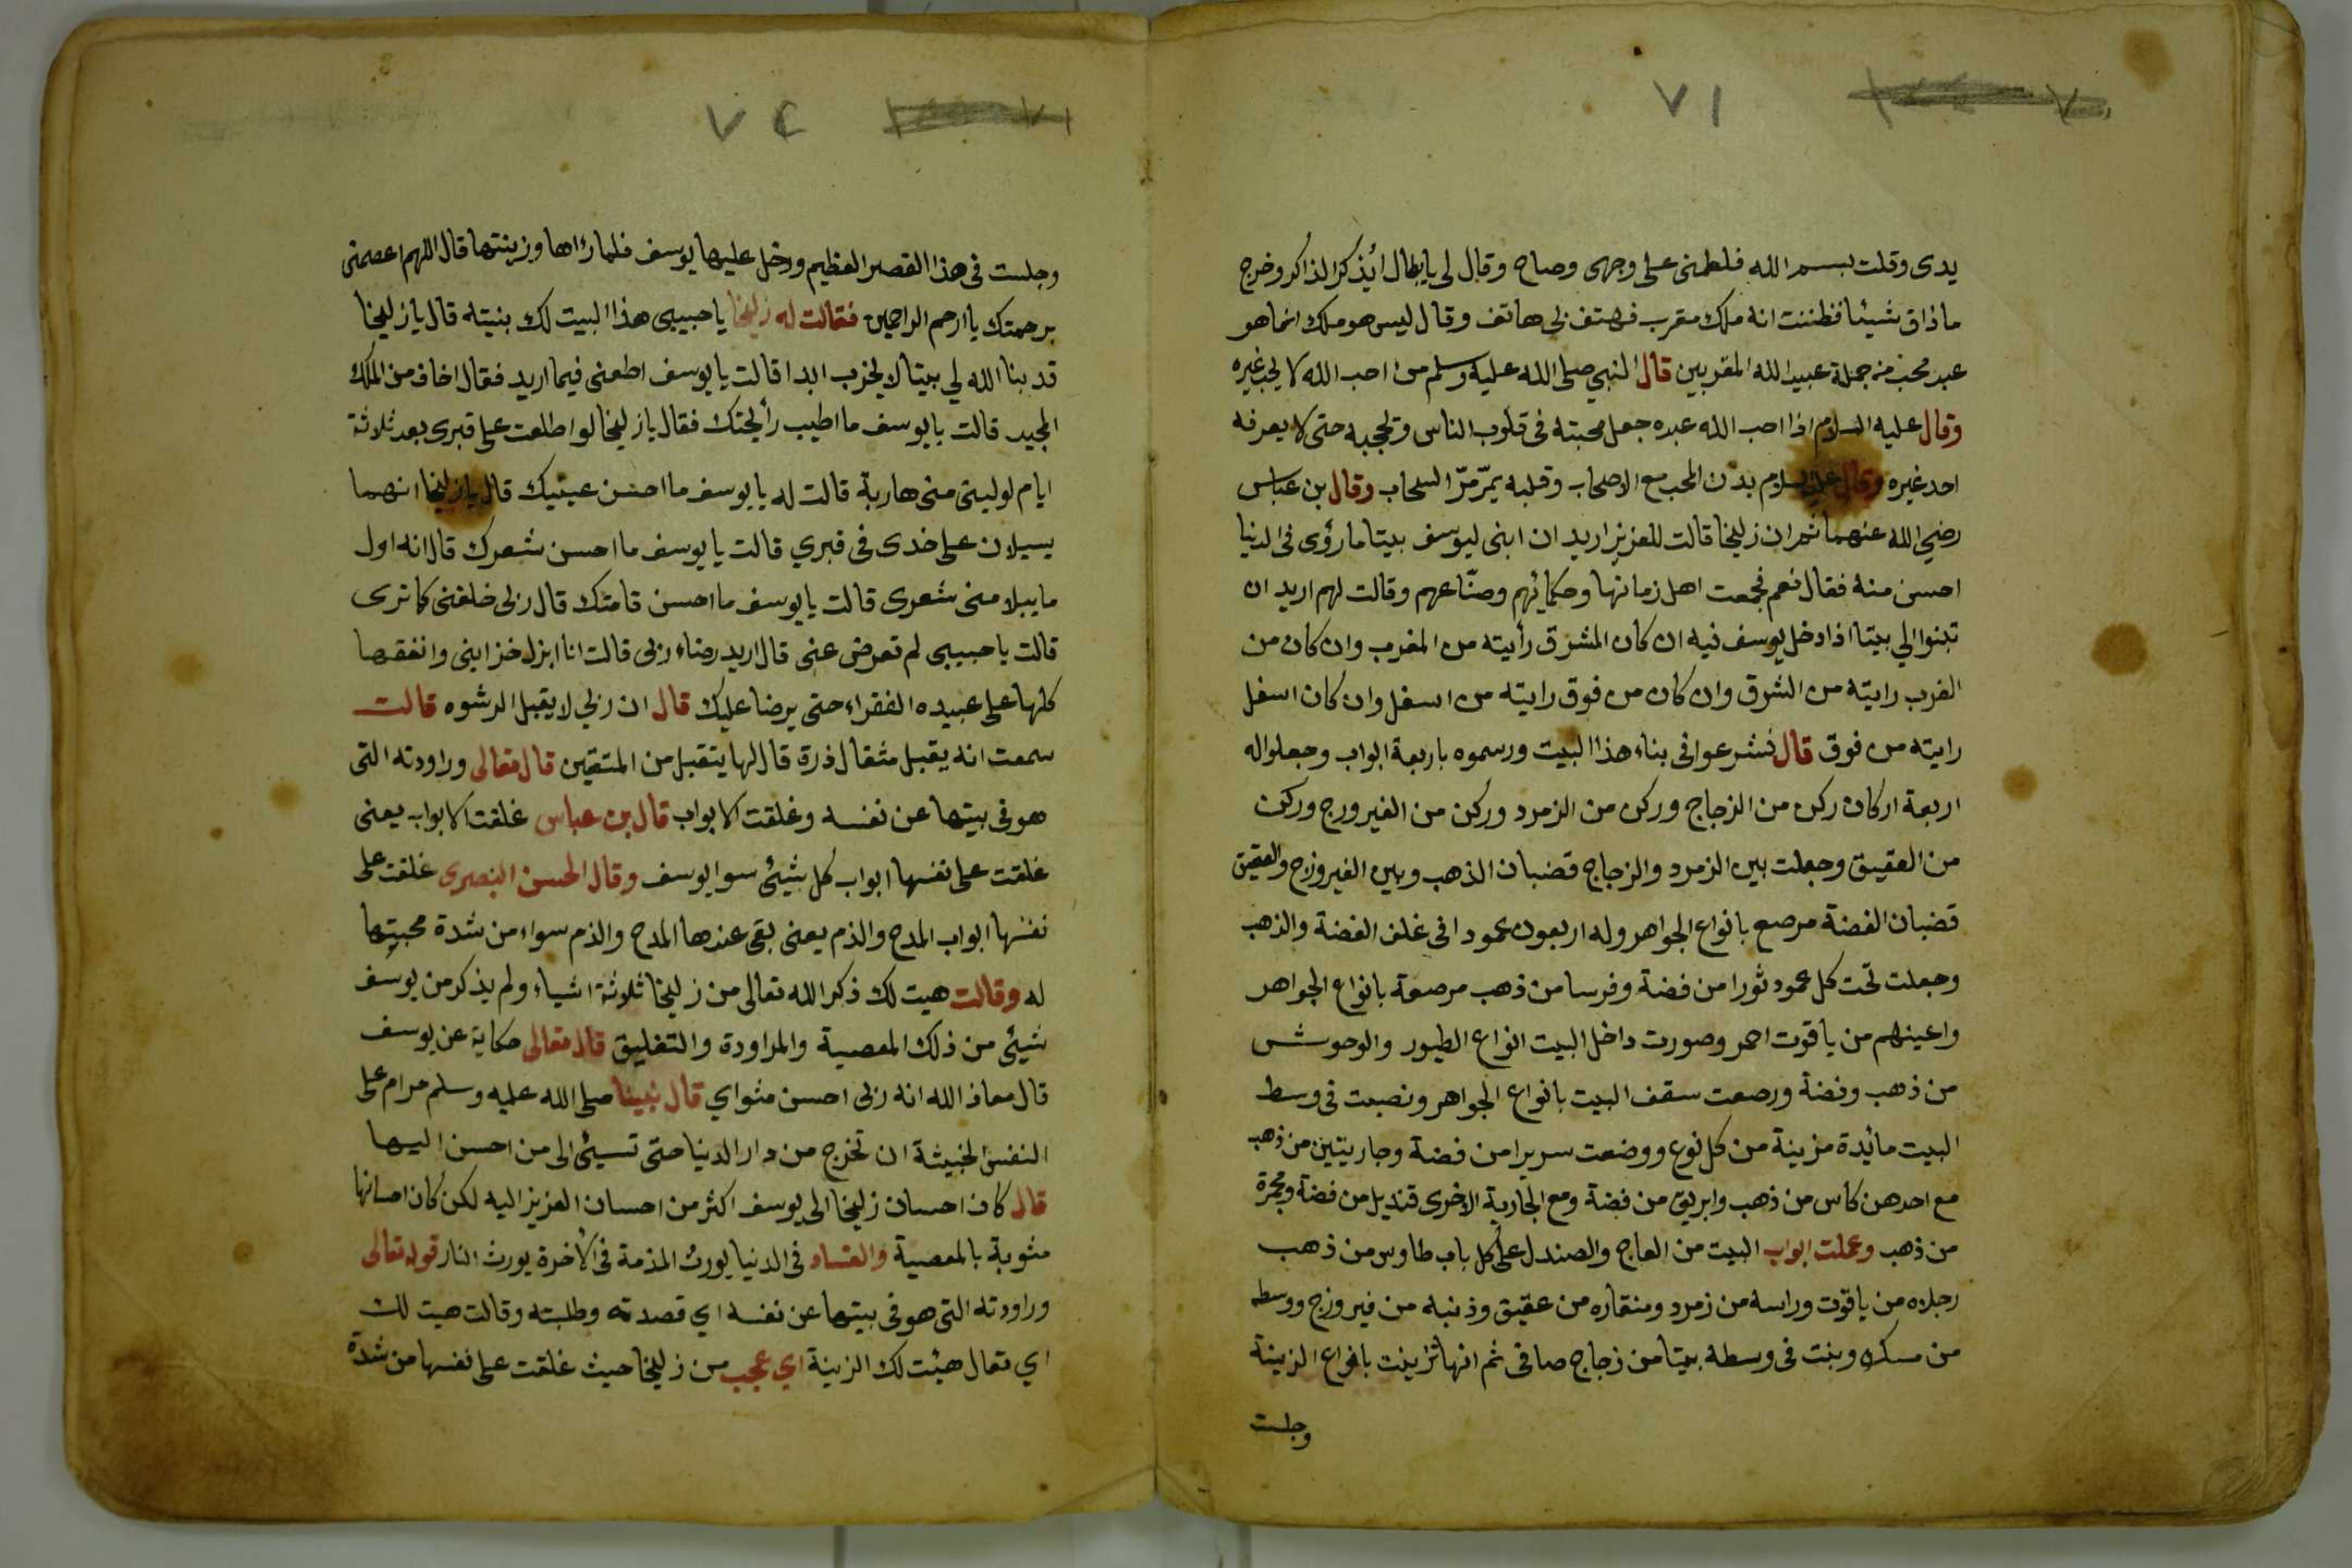 ٧١
يدى وقلت بسم الله فلطمنى على وجهى وصاح وقال لى يا بطال ايذكر الذاكر وخرج
ماذاق شيئا فظننت انه ملك مقرب فهتف بى هاتف وقال ليس هو ملك انما هو
عبد محب من جملة عبيد الله المقربين قال النبي صلى الله عليه وسلم من احب الله لا يحب غيره
وقال عليه السلام اذا احب الله عبده جعل محبته فى قلوب الناس وتحجبه حتى لا يعرفه
احد غيره وقال عليه السلام بدن المحب مع الاصحاب وقلبه يمرّ مرّ السحاب وقال بن عباس
رضي الله عنهما ثم ان زليخا قالت للعزيز اريد ان ابنى ليوسف بيتا ما رؤى فى الدنيا
احسن منه فقال نعم فجمعت اهل زمانها وحكمائهم وصنّاعهم وقالت لهم اريد ان
تبنوا لي بيتا اذا دخل يوسف فيه ان كان المشرق رأيته من المغرب وان كان من
الغرب رايته من الشرق وان كان من فوق رايته من اسفل وان كان اسفل
رايته من فوق قال فشرعوا فى بناء هذا البيت ورسموه باربعة ابواب وجعلوا له
اربعة اركان ركن من الزجاج وركن من الزمرد وركن من الفيرورج وركن
من العقيق وجعلت بين الزمرد والزجاج قضبان الذهب وبين الفيروزج والعقيق
قضبان الفضة مرصع بانواع الجواهر وله اربعون عمود افى غلف الفضة والذهب
وجعلت تحت كل عمود ثورا من فضة وفرسا من ذهب مرصعة بانواع الجواهر
واعينهم من ياقوت احمر وصورت داخل البيت انواع الطيور والوحوش
من ذهب وفضة ورصعت سقف البيت بانواع الجواهر ونصبت فى وسط
البيت مائدة مزينة من كل نوع ووضعت سريرا من فضة وجاريتين من ذهب
مع احدهن كاس من ذهب وابريق من فضة ومع الجارية الاخرى قنديل من فضة ومجمرة
من ذهب وعملت ابواب البيت من العاج والصندل على كل باب طاوس من ذهب
رجلاه من ياقوت وراسه من زمرد ومنقاره من عقيق وذنبه من فيروزج ووسطه
من مسك وبنت فى وسطه بيتا من زجاج صافى ثم انها تزينت بانواع الزينة
وجلست
٧٢
وجلست فى هذا القصر العظيم ودخل عليها يوسف فلما راها وزينتها قال اللهم اعصمنى
برحمتك يا ارحم الراحمين فقالت له زليخا يا حبيبى هذا البيت لك بنيته قال يا زليخا
قد بنا الله لي بيتا لا يخرب ابدا قالت يا يوسف اطعنى فيما اريد فقال اخاف من الملك
المجيد قالت يا يوسف ما اطيب رأيحتك فقال يا زليخا لو اطلعت على قبرى بعد ثلاثة
ايام لوليتى منى هاربة قالت له يا يوسف ما احسن عينيك قال يا زليخا انهما
يسيلان على خدى فى قبري قالت يا يوسف ما احسن شعرك قال انه اول
ما يبلا منى شعرى قالت يا يوسف ما احسن قامتك قال ربى خلقنى كما ترى
قالت يا حبيبى لم تعرض عنى قال اريد رضاء ربى قالت انا ابزل خزاينى وانفقها
كلها على عبيده الفقراء حتى يرضا عليك قال ان ربي لا يقبل الرشوه قالت
سمعت انه يقبل مثقال ذرة قال لها يتقبل من المتقين قال تعالى وراودته التى
هو فى بيتها عن نفسه وغلقت الابواب قال بن عباس غلقت الابواب يعنى
غلقت على نفسها ابواب كل شيئ سوا يوسف وقال الحسن البصرى غلقت على
نفسها ابواب المدح والذم يعنى بقى عندها المدح والذم سواء من شدة محبتها
له وقالت هيت لك ذكر الله تعالى من زليخا ثلاثة اشياء ولم يذكر من يوسف
شيئ من ذلك المعصية والمراودة والتغليق قال تعالى حكاية عن يوسف
قال معاذ الله انه ربى احسن مثواي قال نبينا صلى الله عليه وسلم حرام على
النفس الخبيثة ان تخرج من دار الدنيا حتى تسيئ الى من احسن اليها
قال كان احسان زليخا الى يوسف اكثر من احسان العزيز اليه لكن كان احسانها
مثوبة بالمعصية والفساد فى الدنيا يورث المذمة فى الأخرة يورث النار قوله تعالى
وراودته التى هو فى بيتها عن نفسه اي قصدته وطلبته وقالت هيت لك
اي تعال هيئت لك الزينة اي عجب من زليخا حيث غلقت على نفسها من شدة